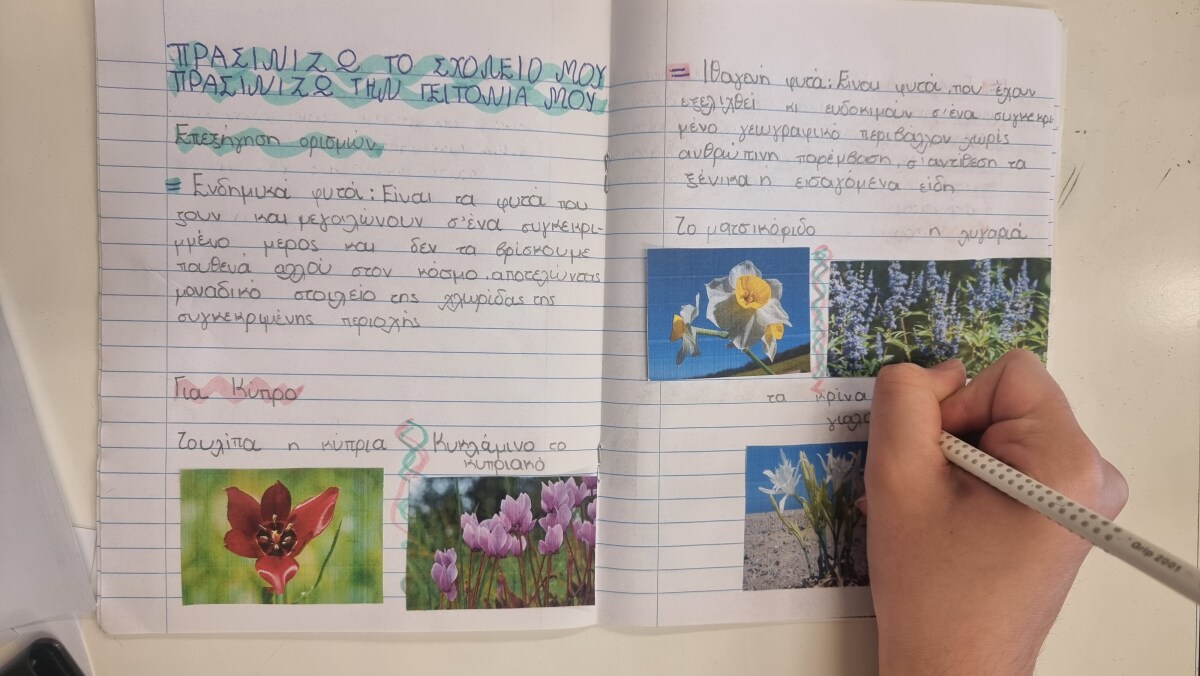 ΠΡΑΣΙΝΙΖΩ ΤΟ ΣΧΟΛΕΙΟ ΜΟΥ
ΠΡΑΣΙΝΙΖΩ ΤΗΝ ΓΕΙΤΟΝΙΑ ΜΟΥ
Επεξήγηση ορισμών
= Ενδημικά φυτά: Είναι τα φυτά που
ζουν και μεγαλώνουν σ'ένα συγκεκρι-
μμένο μέρος και δεν τα βρίσκουμε
πουθενά αλλού στον κόσμο, αποτελώντας
μοναδικό στοιχείο της χλωρίδας της
συγκεκριμένης περιοχής
Για Κύπρο
Τουλίπα η κύπρια
Κυκλάμινο το
κυπριακό
= Ιθαγενή φυτά: Είναι φυτά που έχουν
εξελιχθεί κι ευδοκιμούν σ'ένα συγκεκρι-
μένο γεωγραφικό περιβάλλον χωρίς
ανθρώπινη παρέμβαση, σ'αντίθεση τα
ξενικά ή εισαγόμενα είδη
Το ματσικόριδο
η λυγαριά
τα κρίνα
γιαλ
Grip 2001